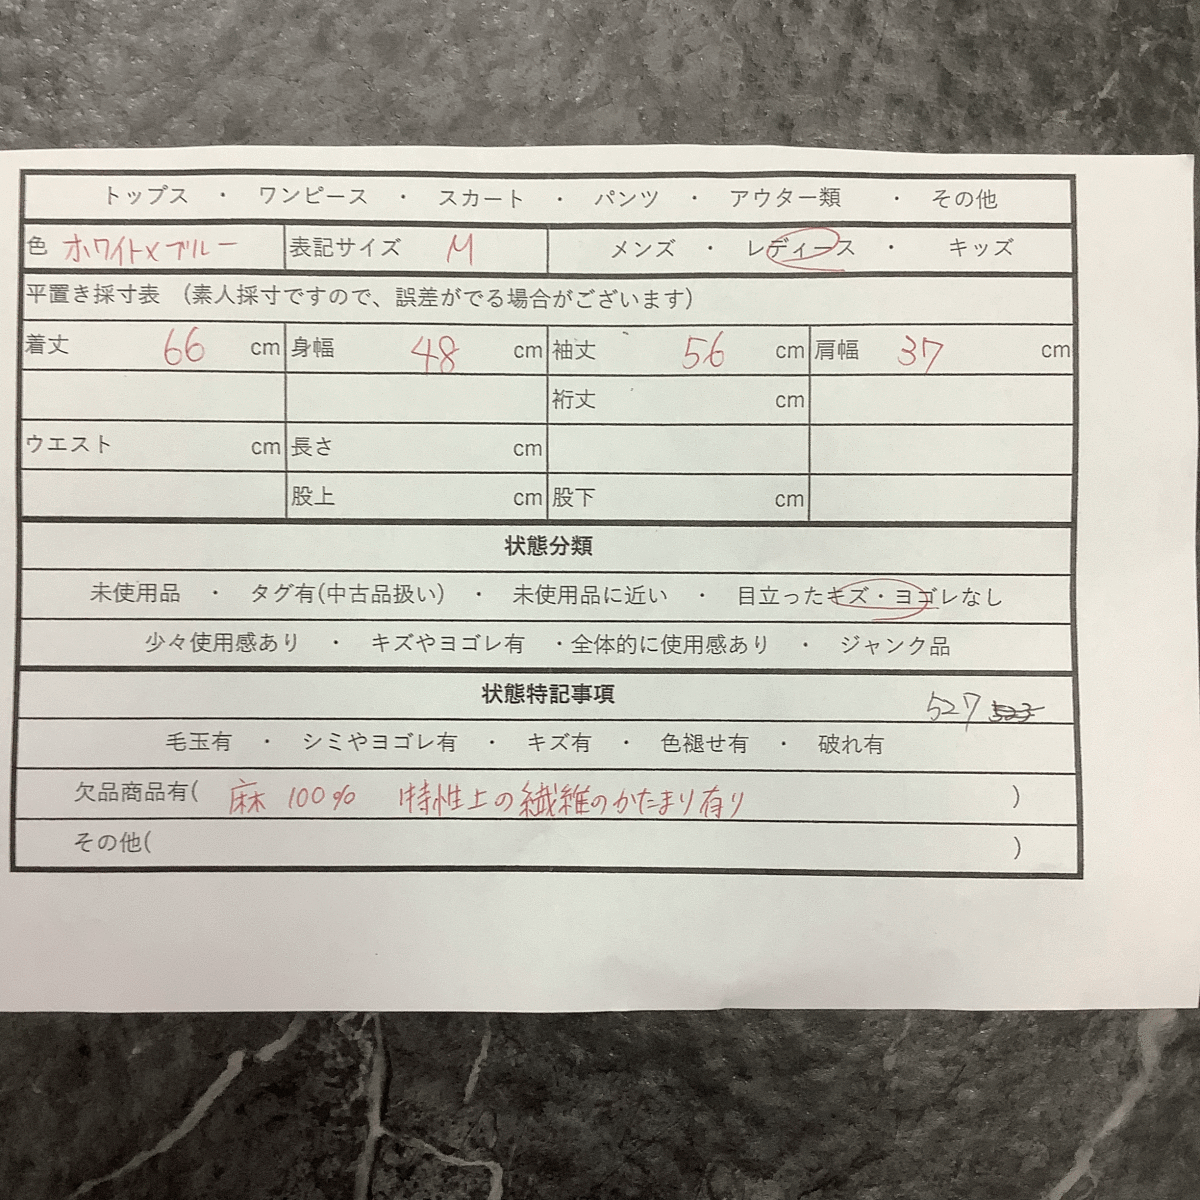 トップス ・ ワンピース ・ スカート ・ パンツ ・ アウター類 ・ その他
色 ホワイト×ブルー 表記サイズ M メンズ ・ レディース ・ キッズ
平置き採寸表 （素人採寸ですので、誤差がでる場合がございます）
着丈 66 cm 身幅 48 cm 袖丈 56 cm 肩幅 37 cm
裄丈 cm
ウエスト cm 長さ cm
股上 cm 股下 cm
状態分類
未使用品 ・ タグ有(中古品扱い) ・ 未使用品に近い ・ 目立ったキズ・ヨゴレなし
少々使用感あり ・ キズやヨゴレ有 ・全体的に使用感あり ・ ジャンク品
状態特記事項 527
毛玉有 ・ シミやヨゴレ有 ・ キズ有 ・ 色褪せ有 ・ 破れ有
欠品商品有( 麻 100% 特性上の繊維のかたまり有り )
その他( )